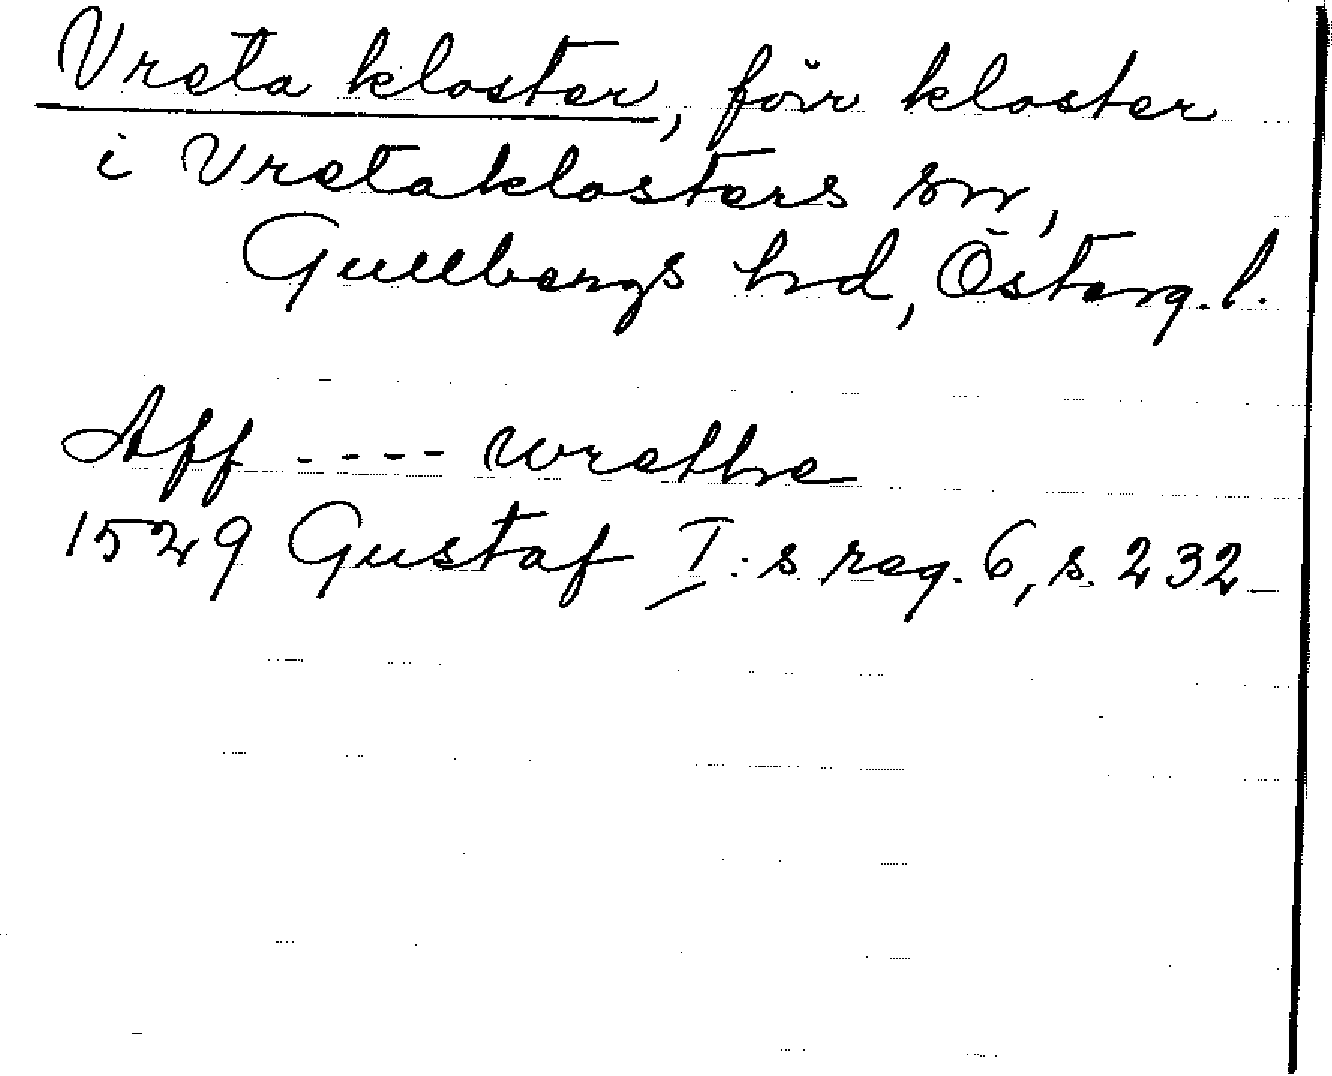 Vreta kloster, förr kloster
i Vretaklosters sn,
Gullbergs hd, Österg. l.
Aff ---- wrethe
1529 Gustaf I:s reg. 6, s. 232